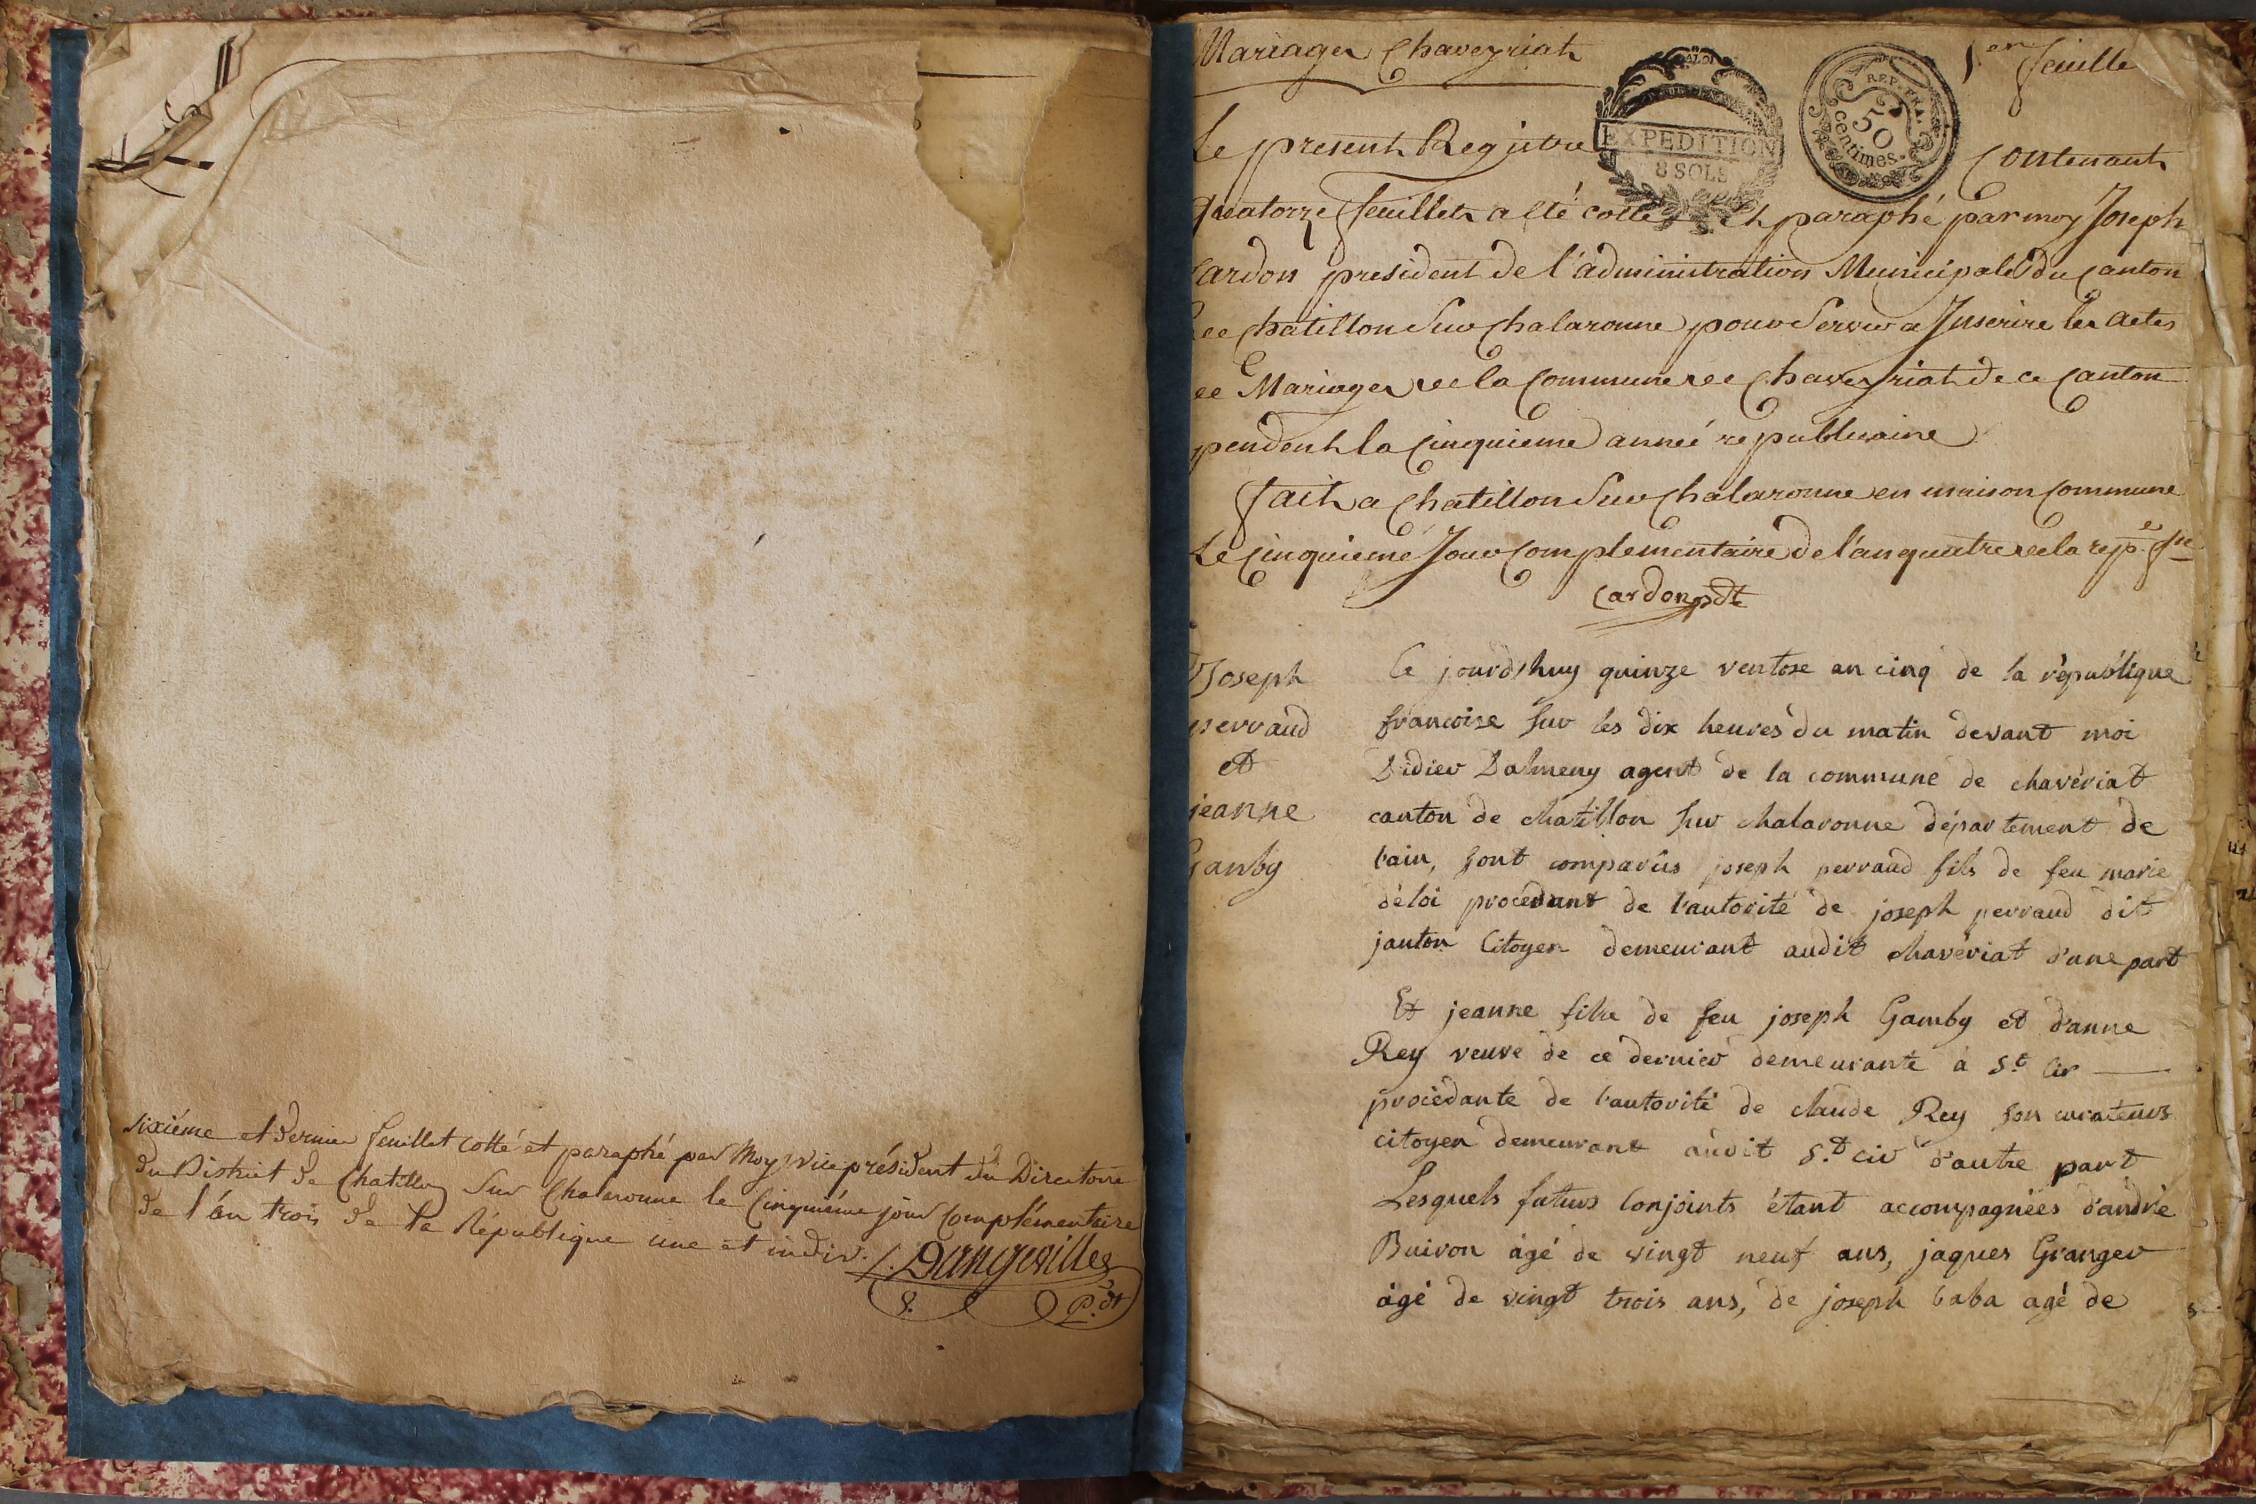 sixiéme et dernier feuillet cotté et paraphé par Moy vice président du Directoire
du District de Chatillon Sur Chalaronne le Cinquiéme jour Complémentaire
de l'án trois de la République une et indiv.
Dangeville
P.dt
Mariages Chaveyriat
1er feuille
EXPEDITION
8 SOLS
REP. FRA.
50
centimes.
Le present Registre Contenant
quatorze feuillets a été cotté et paraphé par moy Joseph
Cardon president de l'administration Municipale du Canton
de Chatillon Sur Chalaronne pour Servir a Inscrire les Actes
de Mariages de la Commune de Chaveyriat de ce Canton
pendent la Cinquieme anneé republicaine
fait a Chatillon Sur Chalaronne en maison Commune
Le Cinquieme Jour Complementaire de l'an quatre de la rep.e
Cardon pdt
Joseph
perraud
et
jeanne
Gamby
Ce jourd'huy quinze ventose an cinq de la république
francoise sur les dix heures du matin devant moi
Didier Dalmeny agent de la commune de chavériat
canton de chatillon sur chalaronne département de
l'ain, sont comparûs joseph perraud fils de feu marie
déloi procedant de l'autorité de joseph perraud dit
janton Citoyen demeurant audit chavériat d'une part
Et jeanne fille de feu joseph Gamby et d'anne
Rey veuve de ce dernier demeurante à St Cir
procédante de l'autorité de claude Rey son curateur
citoyen demeurant audit St cir d'autre part
Lesquels futurs Conjoints étant accompagnées d'andré
Buiron âgé de vingt neuf ans, jaques Granger
âgé de vingt trois ans, de joseph baba agé de